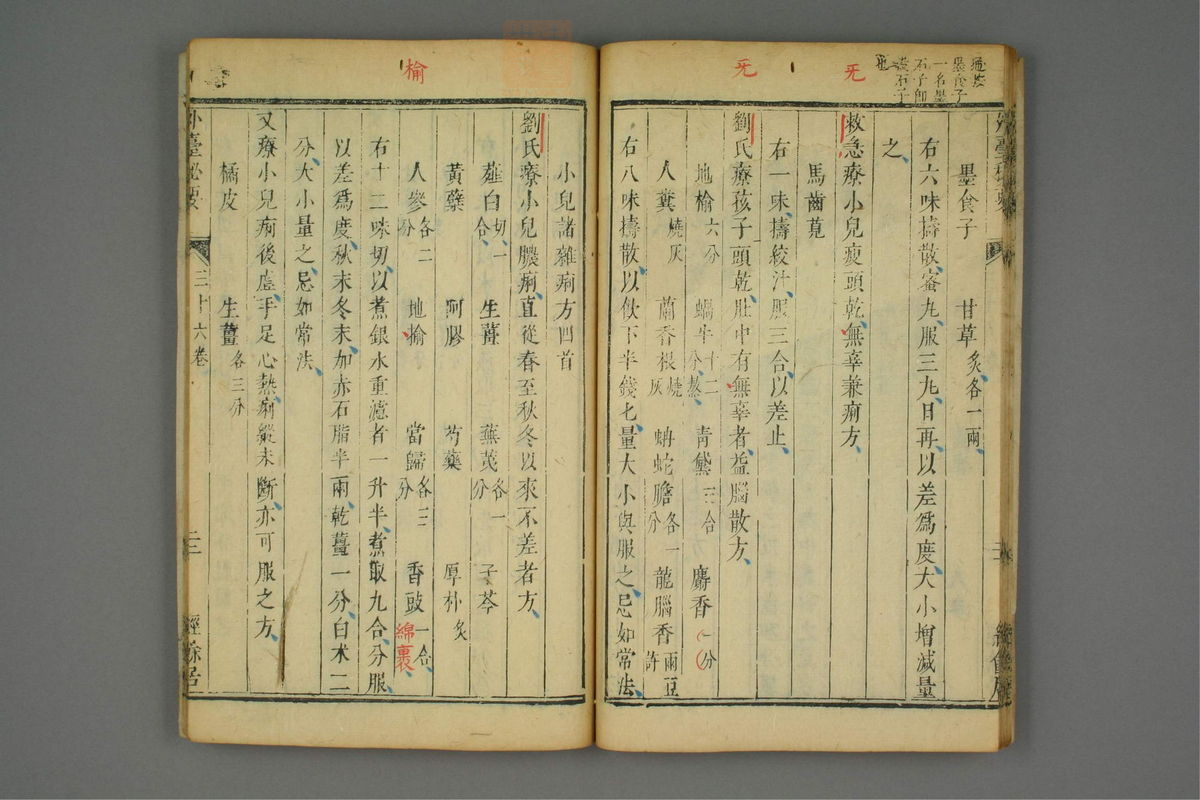 墨食子　甘草炙各一兩
右六味擣散蜜丸服三丸日再以差爲度大小增減量
之
救急療小兒瘦頭乾無辜兼痢方
馬齒莧
右一味擣絞汁服三合以差止
劉氏療孩子頭乾肚中有無辜者益腦散方
地榆六分　蝸牛十二分熬　青黛三合　麝香一分
人糞燒灰　蘭香根燒灰　蚺蛇膽各一分　龍腦香兩豆許
右八味擣散以飲下半錢匕量大小與服之忌如常法
墨食子
一名墨
石子即
沒石子
也
旡
旡
小兒諸雜痢方四首
劉氏療小兒膿痢直從春至秋冬以來不差者方
薤白切一合　生薑　蕪荑各一分　子芩
黃蘗　阿膠　芍藥　厚朴炙
人參各二分　地揄　當歸各三分　香豉一合綿裹
右十二味切以煮銀水重濾者一升半煮取九合分服
以差爲度秋末冬末加赤石脂半兩乾薑一分白朮二
分大小量之忌如常法
又療小兒痢後虛手足心熱痢縱未斷亦可服之方
橘皮　生薑各三分
榆
外臺秘要
三十六卷
經餘居